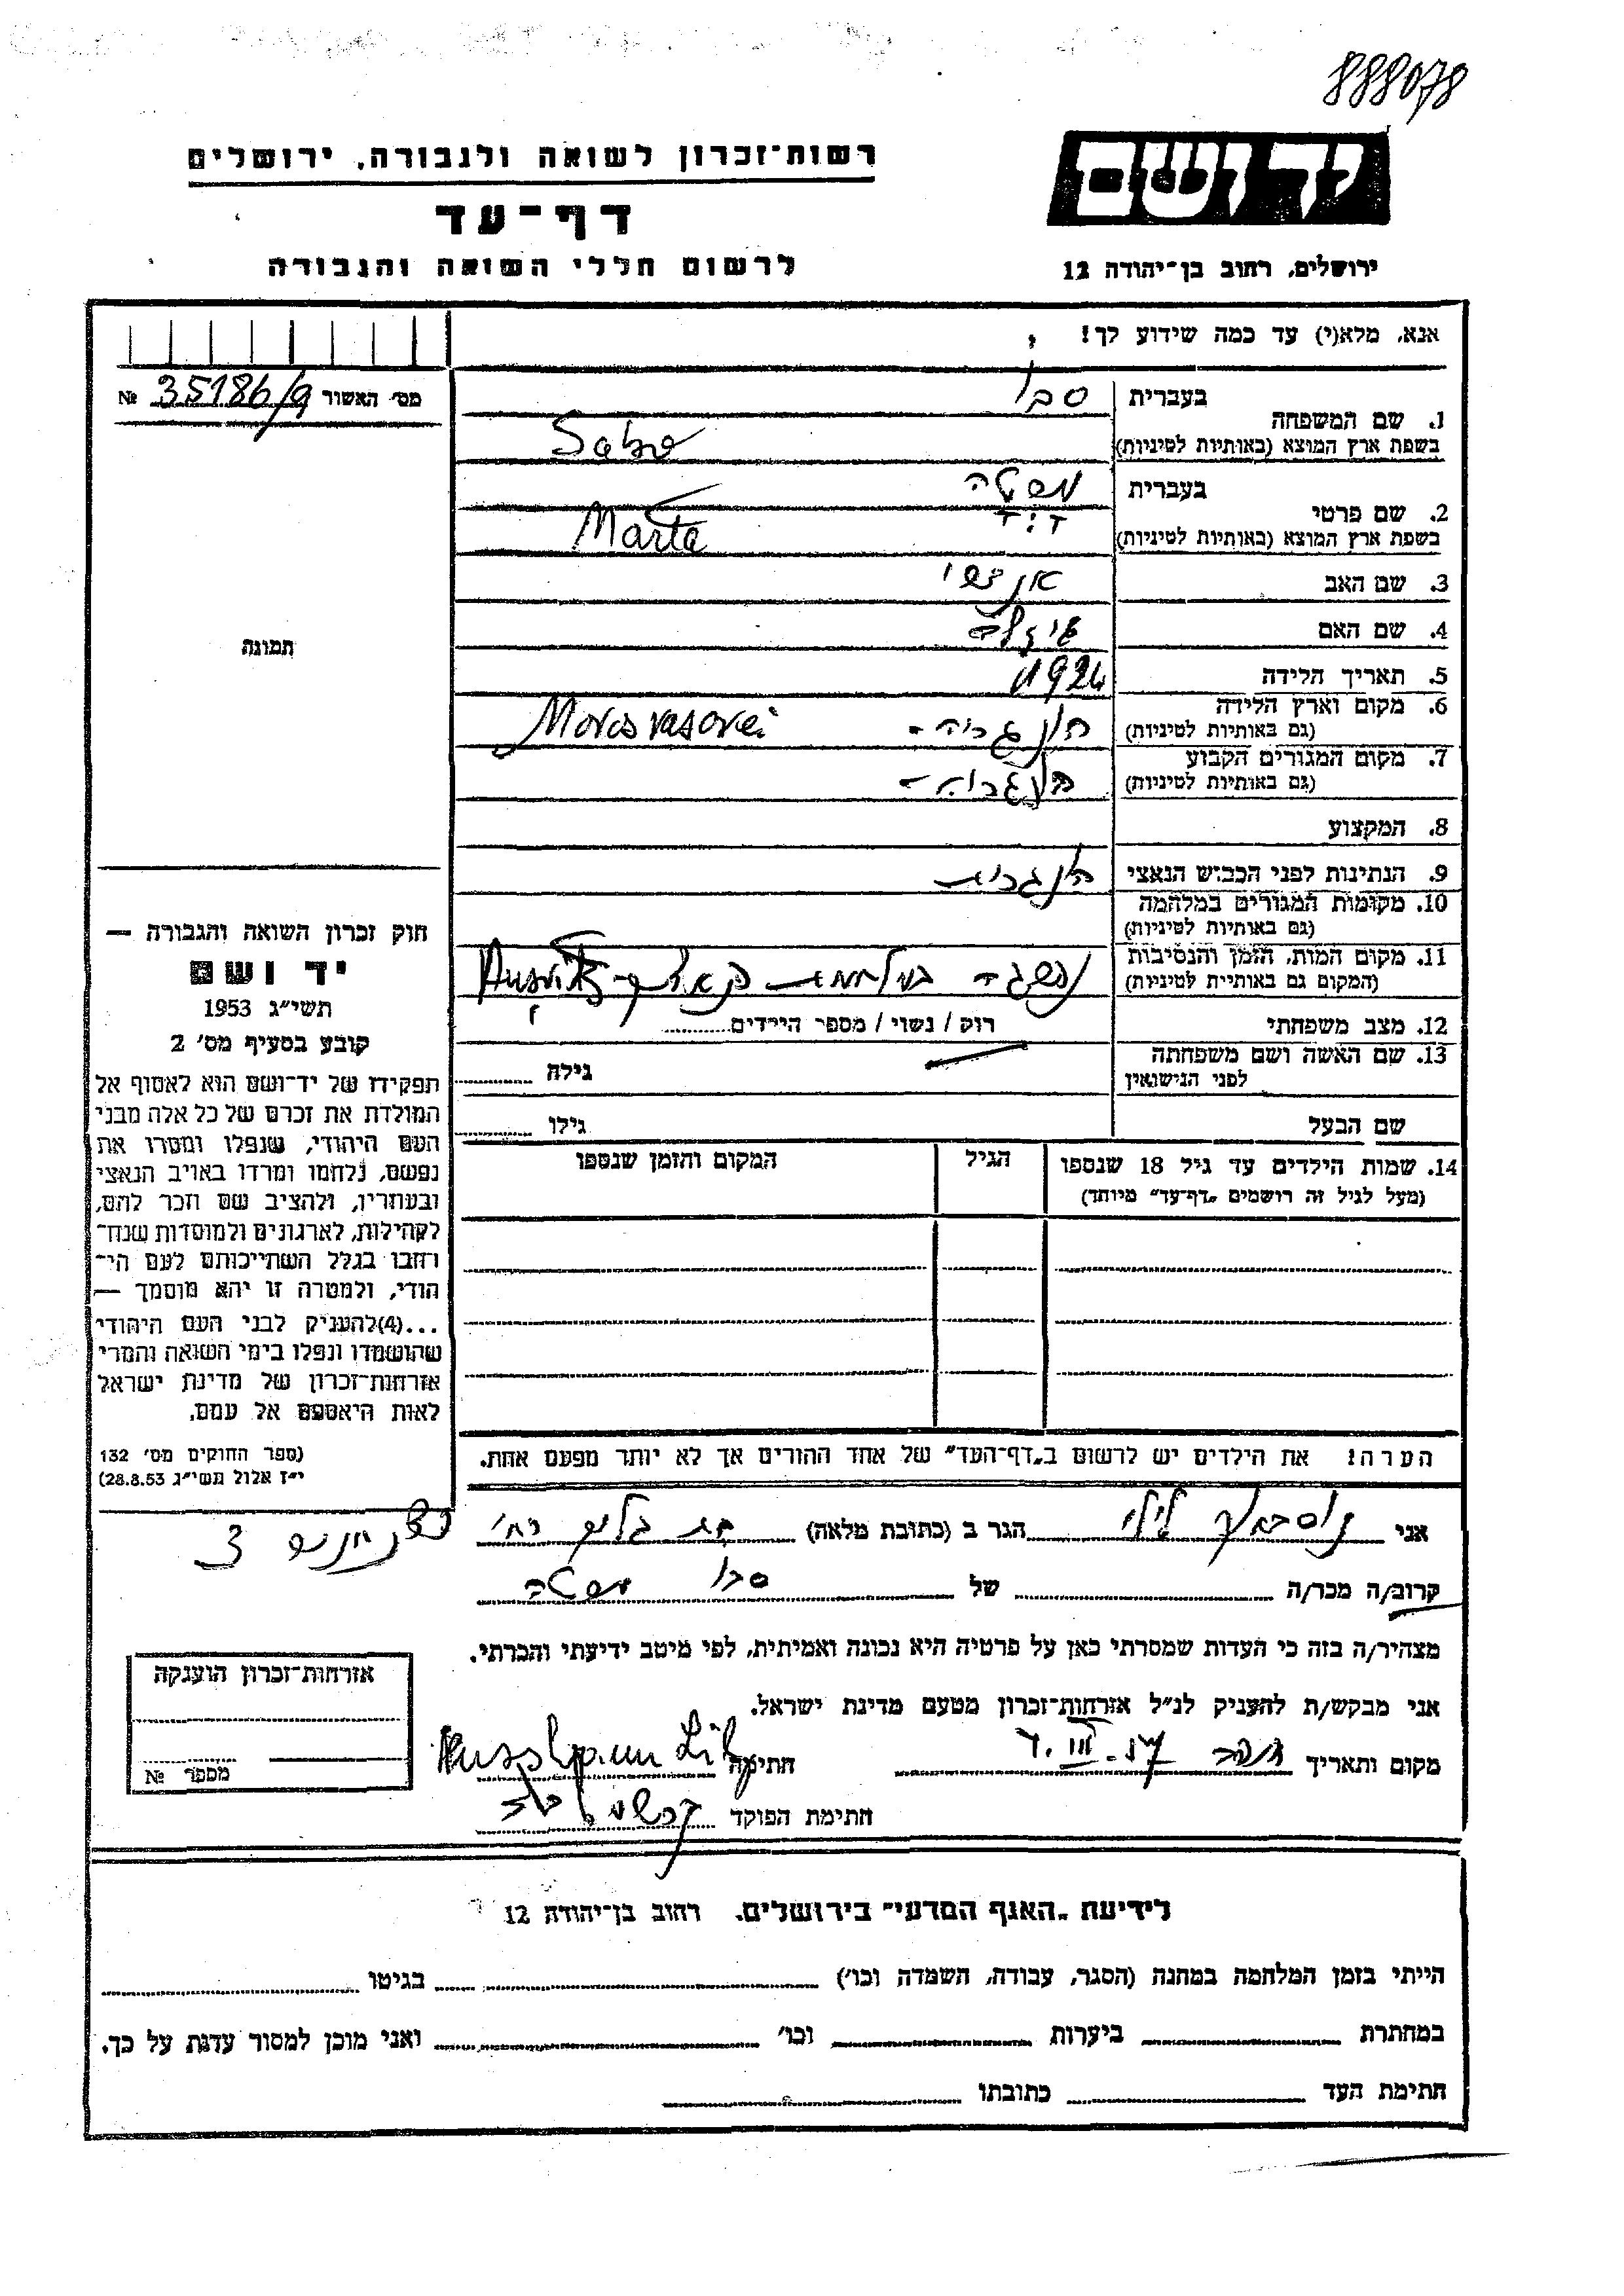 888078
רשות־זכרון לשואה ולגבורה, ירושלים
יד ושם
דף־עד
לרשום חללי השואה והגבורה
ירושלים, רחוב בן־יהודה 12
אנא, מלא(י) עד כמה שידוע לך!
מס׳ האשור № 35186/9
1. שם המשפחה
בעברית סבו
בשפת ארץ המוצא (באותיות לטיניות) Sabo
2. שם פרטי
בעברית מרטה
בשפת ארץ המוצא (באותיות לטיניות) Marta
3. שם האב
4. שם האם
5. תאריך הלידה 1924
6. מקום וארץ הלידה
(גם באותיות לטיניות) הונגריה - Marosvasarhei
7. מקום המגורים הקבוע
(גם באותיות לטיניות) הונגריה -
8. המקצוע
9. הנתינות לפני הכבוש הנאצי הונגרית
10. מקומות המגורים במלחמה
(גם באותיות לטיניות)
11. מקום המות, הזמן והנסיבות
(המקום גם באותיות לטיניות)
12. מצב משפחתי רוק / נשוי / מספר הילדים
13. שם האשה ושם משפחתה
לפני הנישואין גילה
שם הבעל גילו
14. שמות הילדים עד גיל 18 שנספו
(מעל לגיל זה רושמים „דף־עד” מיוחד)
הגיל
המקום והזמן שנספו
תמונה
חוק זכרון השואה והגבורה —
יד ושם
תשי״ג 1953
קובע בסעיף מס׳ 2
תפקידו של יד־ושם הוא לאסוף אל
המולדת את זכרם של כל אלה מבני
העם היהודי, שנפלו ומסרו את
נפשם, נלחמו ומרדו באויב הנאצי
ובעוזריו, ולהציב שם וזכר להם,
לקהילות, לארגונים ולמוסדות שנח־
רחבו בגלל השתייכותם לעם הי־
הודי, ולמטרה זו יהא מוסמך —
...(4)להעניק לבני העם היהודי
שהושמדו ונפלו בימי השואה והמרי
אזרחות־זכרון של מדינת ישראל
לאות היאספם אל עמם.
(ספר החוקים מס׳ 132
י״ז אלול תשי״ג 28.8.53)
הערה! את הילדים יש לרשום ב„דף־העד” של אחד ההורים אך לא יותר מפעם אחת.
אני נוסבאום לילי הגר ב (כתובת מלאה) בת גלים רח׳
3
קרוב/ה מכר/ה של סבו מרטה
מצהיר/ה בזה כי העדות שמסרתי כאן על פרטיה היא נכונה ואמיתית, לפי מיטב ידיעתי והכרתי.
אני מבקש/ת להעניק לנ״ל אזרחות־זכרון מטעם מדינת ישראל.
מקום ותאריך חיפה חתימה Nussbaum Lili
חתימת הפוקד
אזרחות־זכרון הוענקה
מספר №
לידיעת „האגף המדעי” בירושלים, רחוב בן־יהודה 12
הייתי בזמן המלחמה במחנה (הסגר, עבודה, השמדה וכו׳) בגיטו
במחתרת ביערות וכו׳ ואני מוכן למסור עדות על כך.
חתימת העד כתובתו